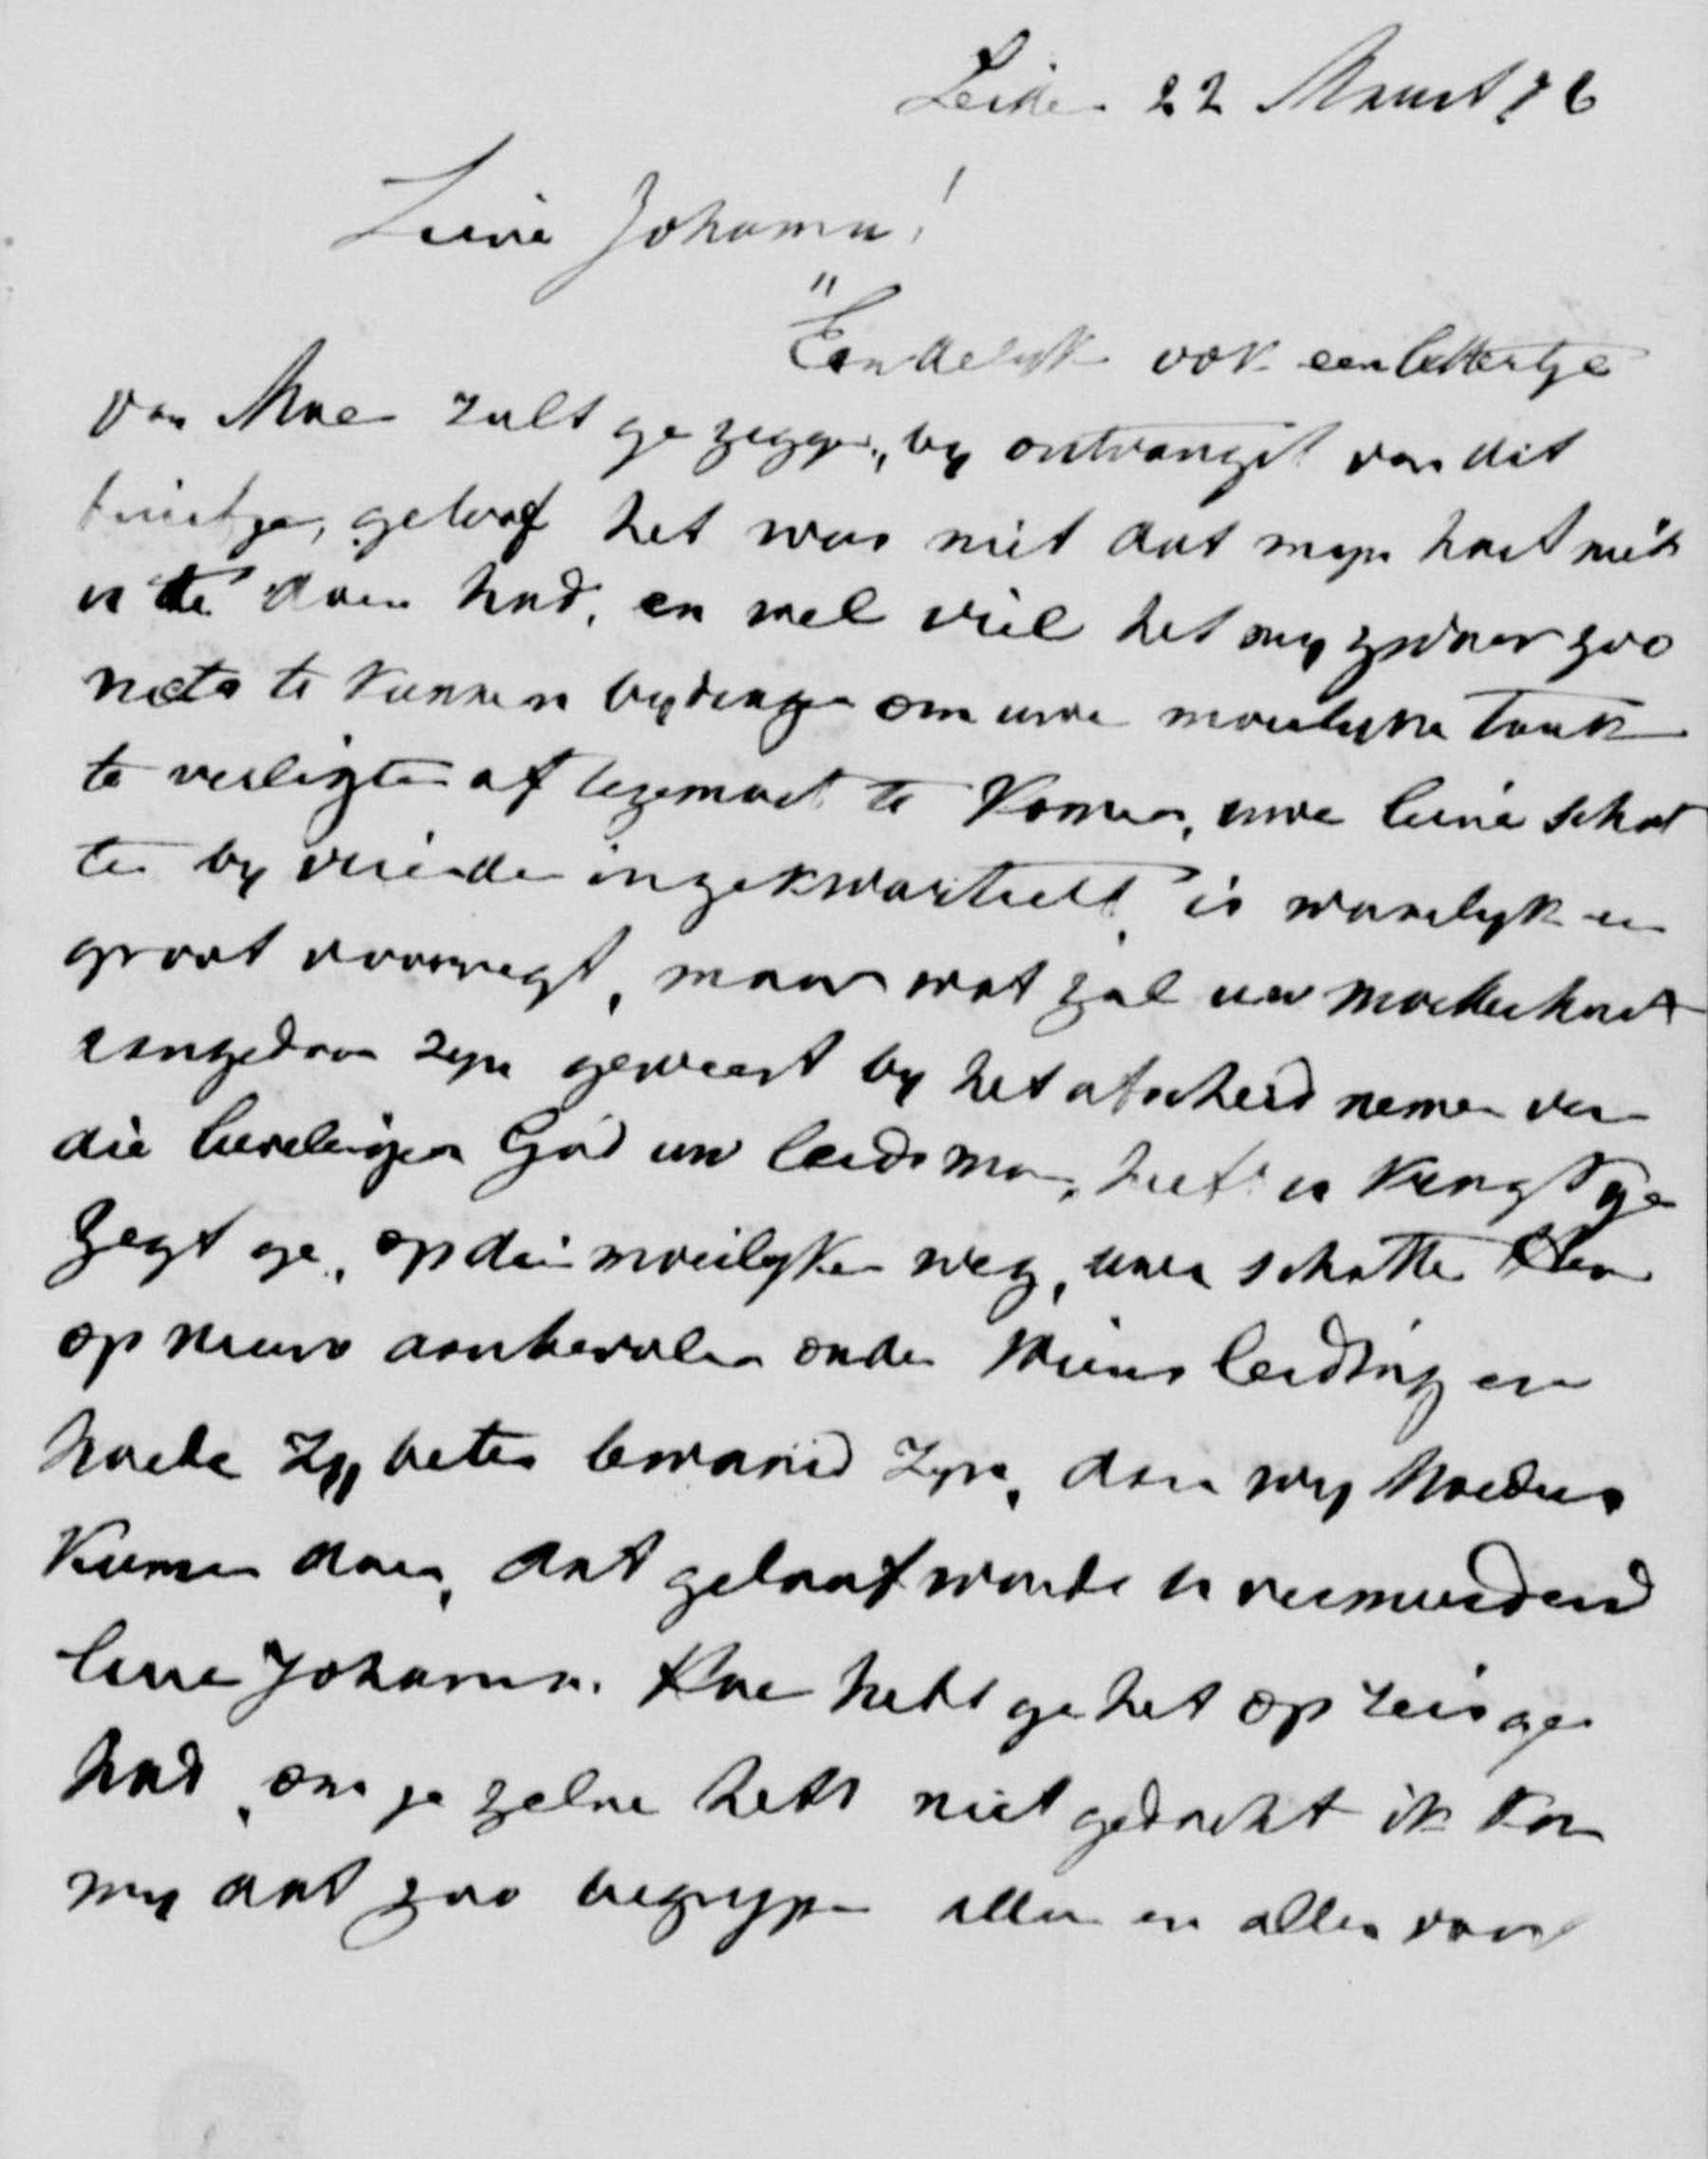 Leiden 22 Maart 76
Lieve Johanna!
"Eindelijk ook een lettertje
van Moe zult ge zeggen", by ontvangst van dit
briefje, geloof het was niet dat myn hart niet
u te doen had, en wel viel het my zwaar zoo
niets te kunnen bydragen om uwe moeielyke taak
te verligten of tegemoet te komen, uwe lieve schat
ten by vrienden ingekwartierd, is waarlyk een
groot voorregt, maar wat zal uw moederhart
aangedaan zyn geweest by het afscheid nemen van
die lievelingen God uw leidsman, heeft u kragt ge
zegt ge, op dien moeilyken weg, uwe schatten Hem
op nieuw aanbevolen onder Wiens leiding en
hoede zy beter bewaard zyn, dan wy Moeders
kunnen doen, dat geloof worde u vermeerderd
lieve Johanna. Hoe hebt ge het op reis ge
had, om je zelve hebt niet gedacht ik kan
my dat zoo begrypen allen en alles voor